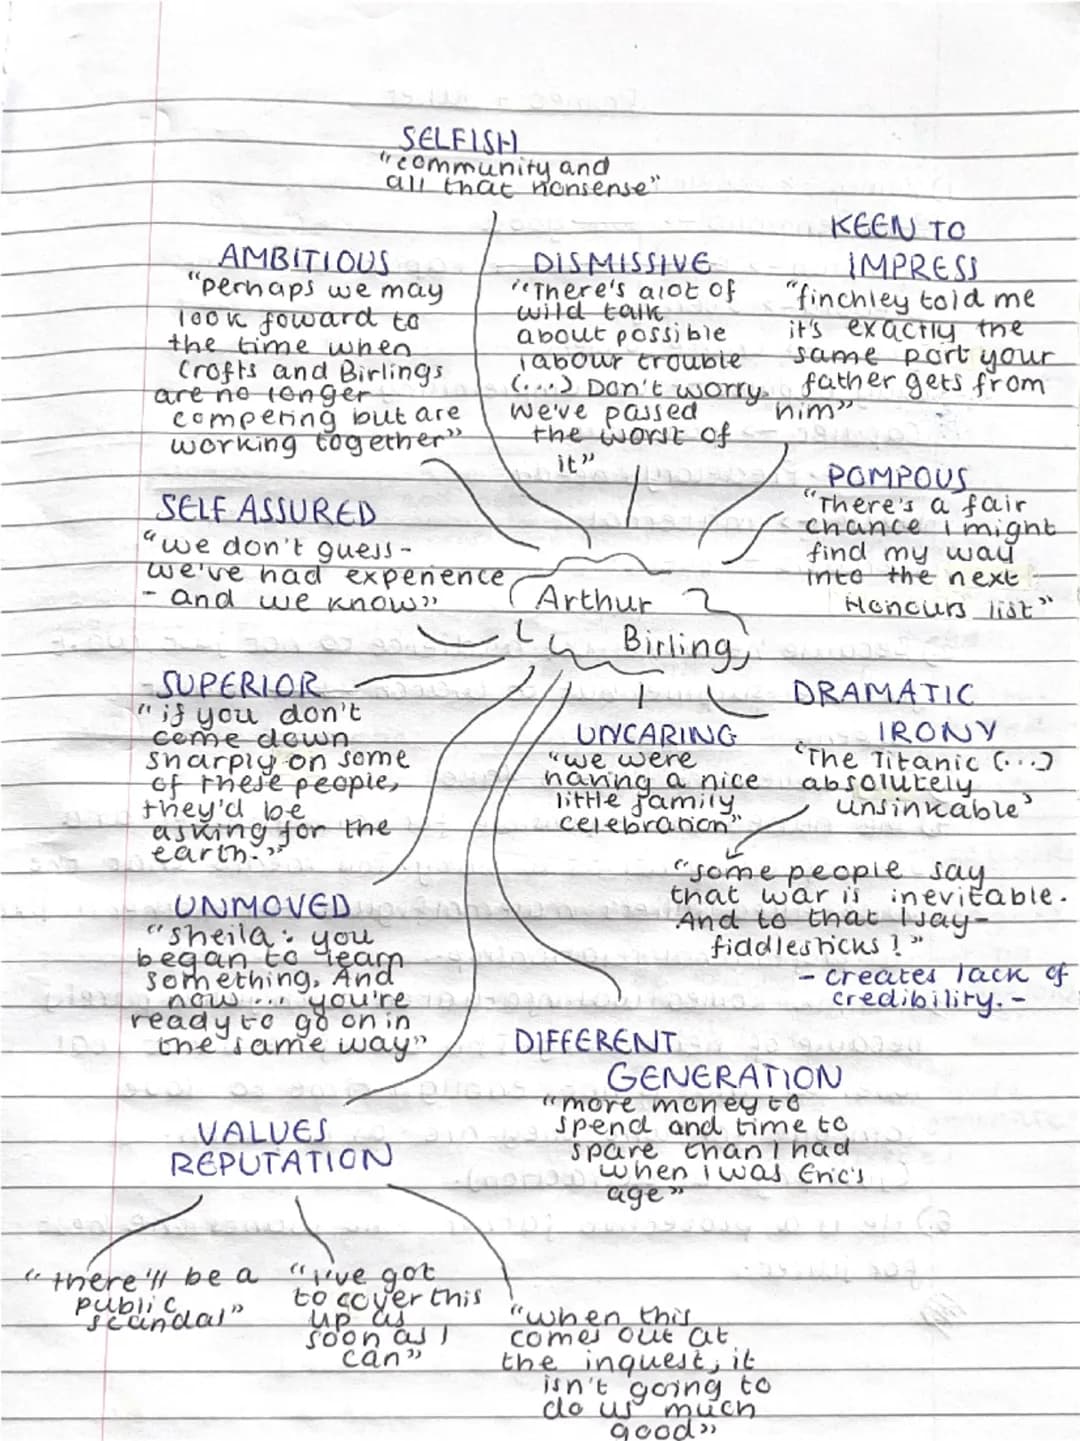 SELFISH
"community and
all that nonsense"
AMBITIOUS
"perhaps we may
look foward to
the time when
Crofts and Birlings
are no longer
competing but are
working together"
DISMISSIVE
"There's alot of
wild talk
about possible
labour trouble
(...) Don't worry.
we've passed
the worst of
it"
KEEN TO
IMPRESS
"finchley told me
it's exactly the
same port your
father gets from
him"
SELF ASSURED
"we don't guess -
we've had experience
- and we know"
POMPOUS
"There's a fair
chance I might
find my way
into the next
Honours list"
Arthur
Birling
SUPERIOR
"if you don't
come down
sharply on some
of these people,
they'd be
asking for the
earth."
UNCARING
"we were
having a nice
little family
celebration"
DRAMATIC
IRONY
"The Titanic (...)
absolutely
unsinkable"
"some people say
that war is inevitable.
And to that I say-
fiddlesticks!"
- creates lack of
credibility. -
UNMOVED
"sheila: you
began to learn
something. And
now... you're
ready to go on in
the same way"
DIFFERENT
GENERATION
"more money to
spend and time to
spare than I had
when I was Eric's
age"
VALUES
REPUTATION
"there'll be a
public
scandal"
"I've got
to cover this
up as
soon as I
can"
"when this
comes out at
the inquest, it
isn't going to
do us much
good"